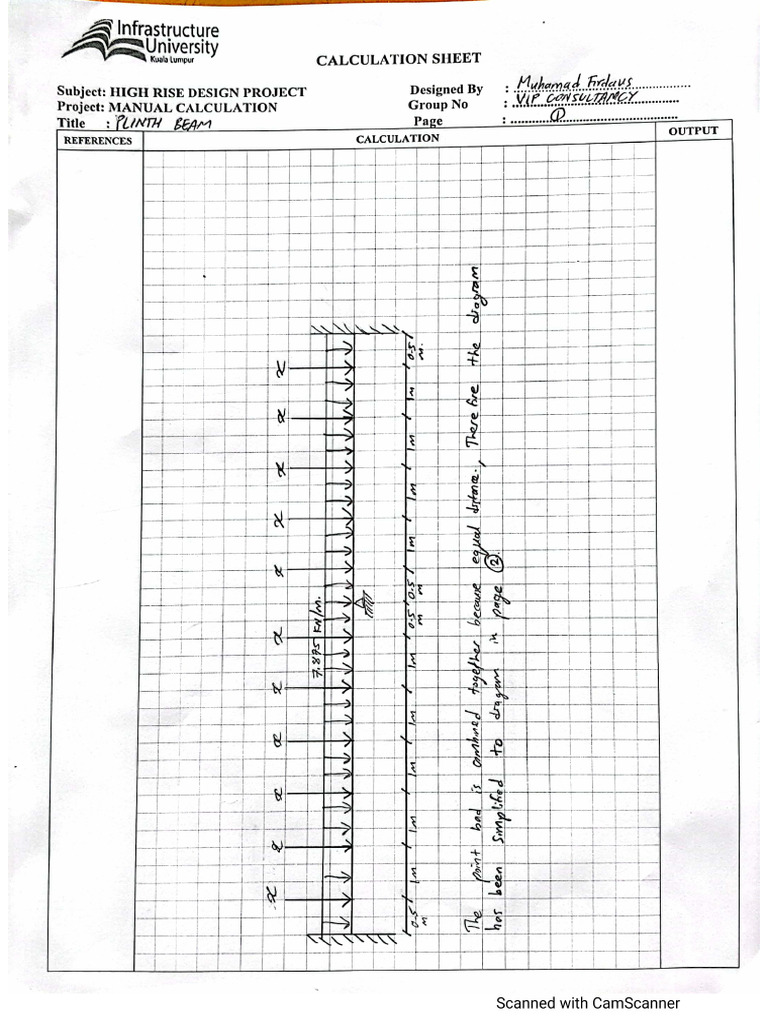 Infrastructure
University
Kuala Lumpur
CALCULATION SHEET
Subject: HIGH RISE DESIGN PROJECT
Designed By : Muhamad Firdaus
Project: MANUAL CALCULATION
Group No : VIP CONSULTANCY
Title : PLINTH BEAM
Page : ①
REFERENCES CALCULATION OUTPUT
x x x x x x x x x x x
7.895 KN/m.
0.5 m 1m 1m 1m 1m 1m 0.5 m 0.5 m 1m 1m 1m 1m 0.5 m.
The point load is combined together because equal distance., Therefore the diagram
has been simplified to diagram in page ②.
Scanned with CamScanner